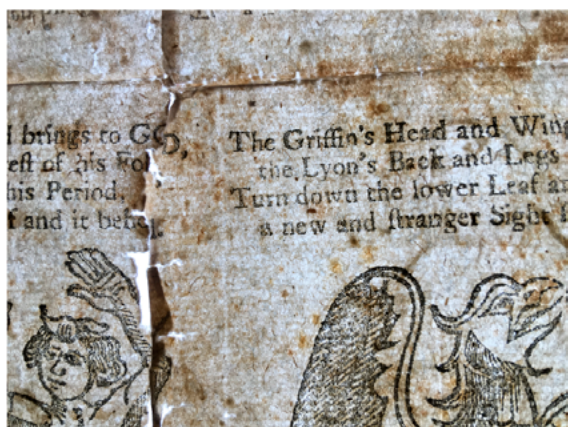 brings to GOD,
eſt of his Fo
his Period.
f and it behol
The Griffin's Head and Wing
the Lyon's Back and Legs
Turn down the lower Leaf a
a new end ſtranger Sight